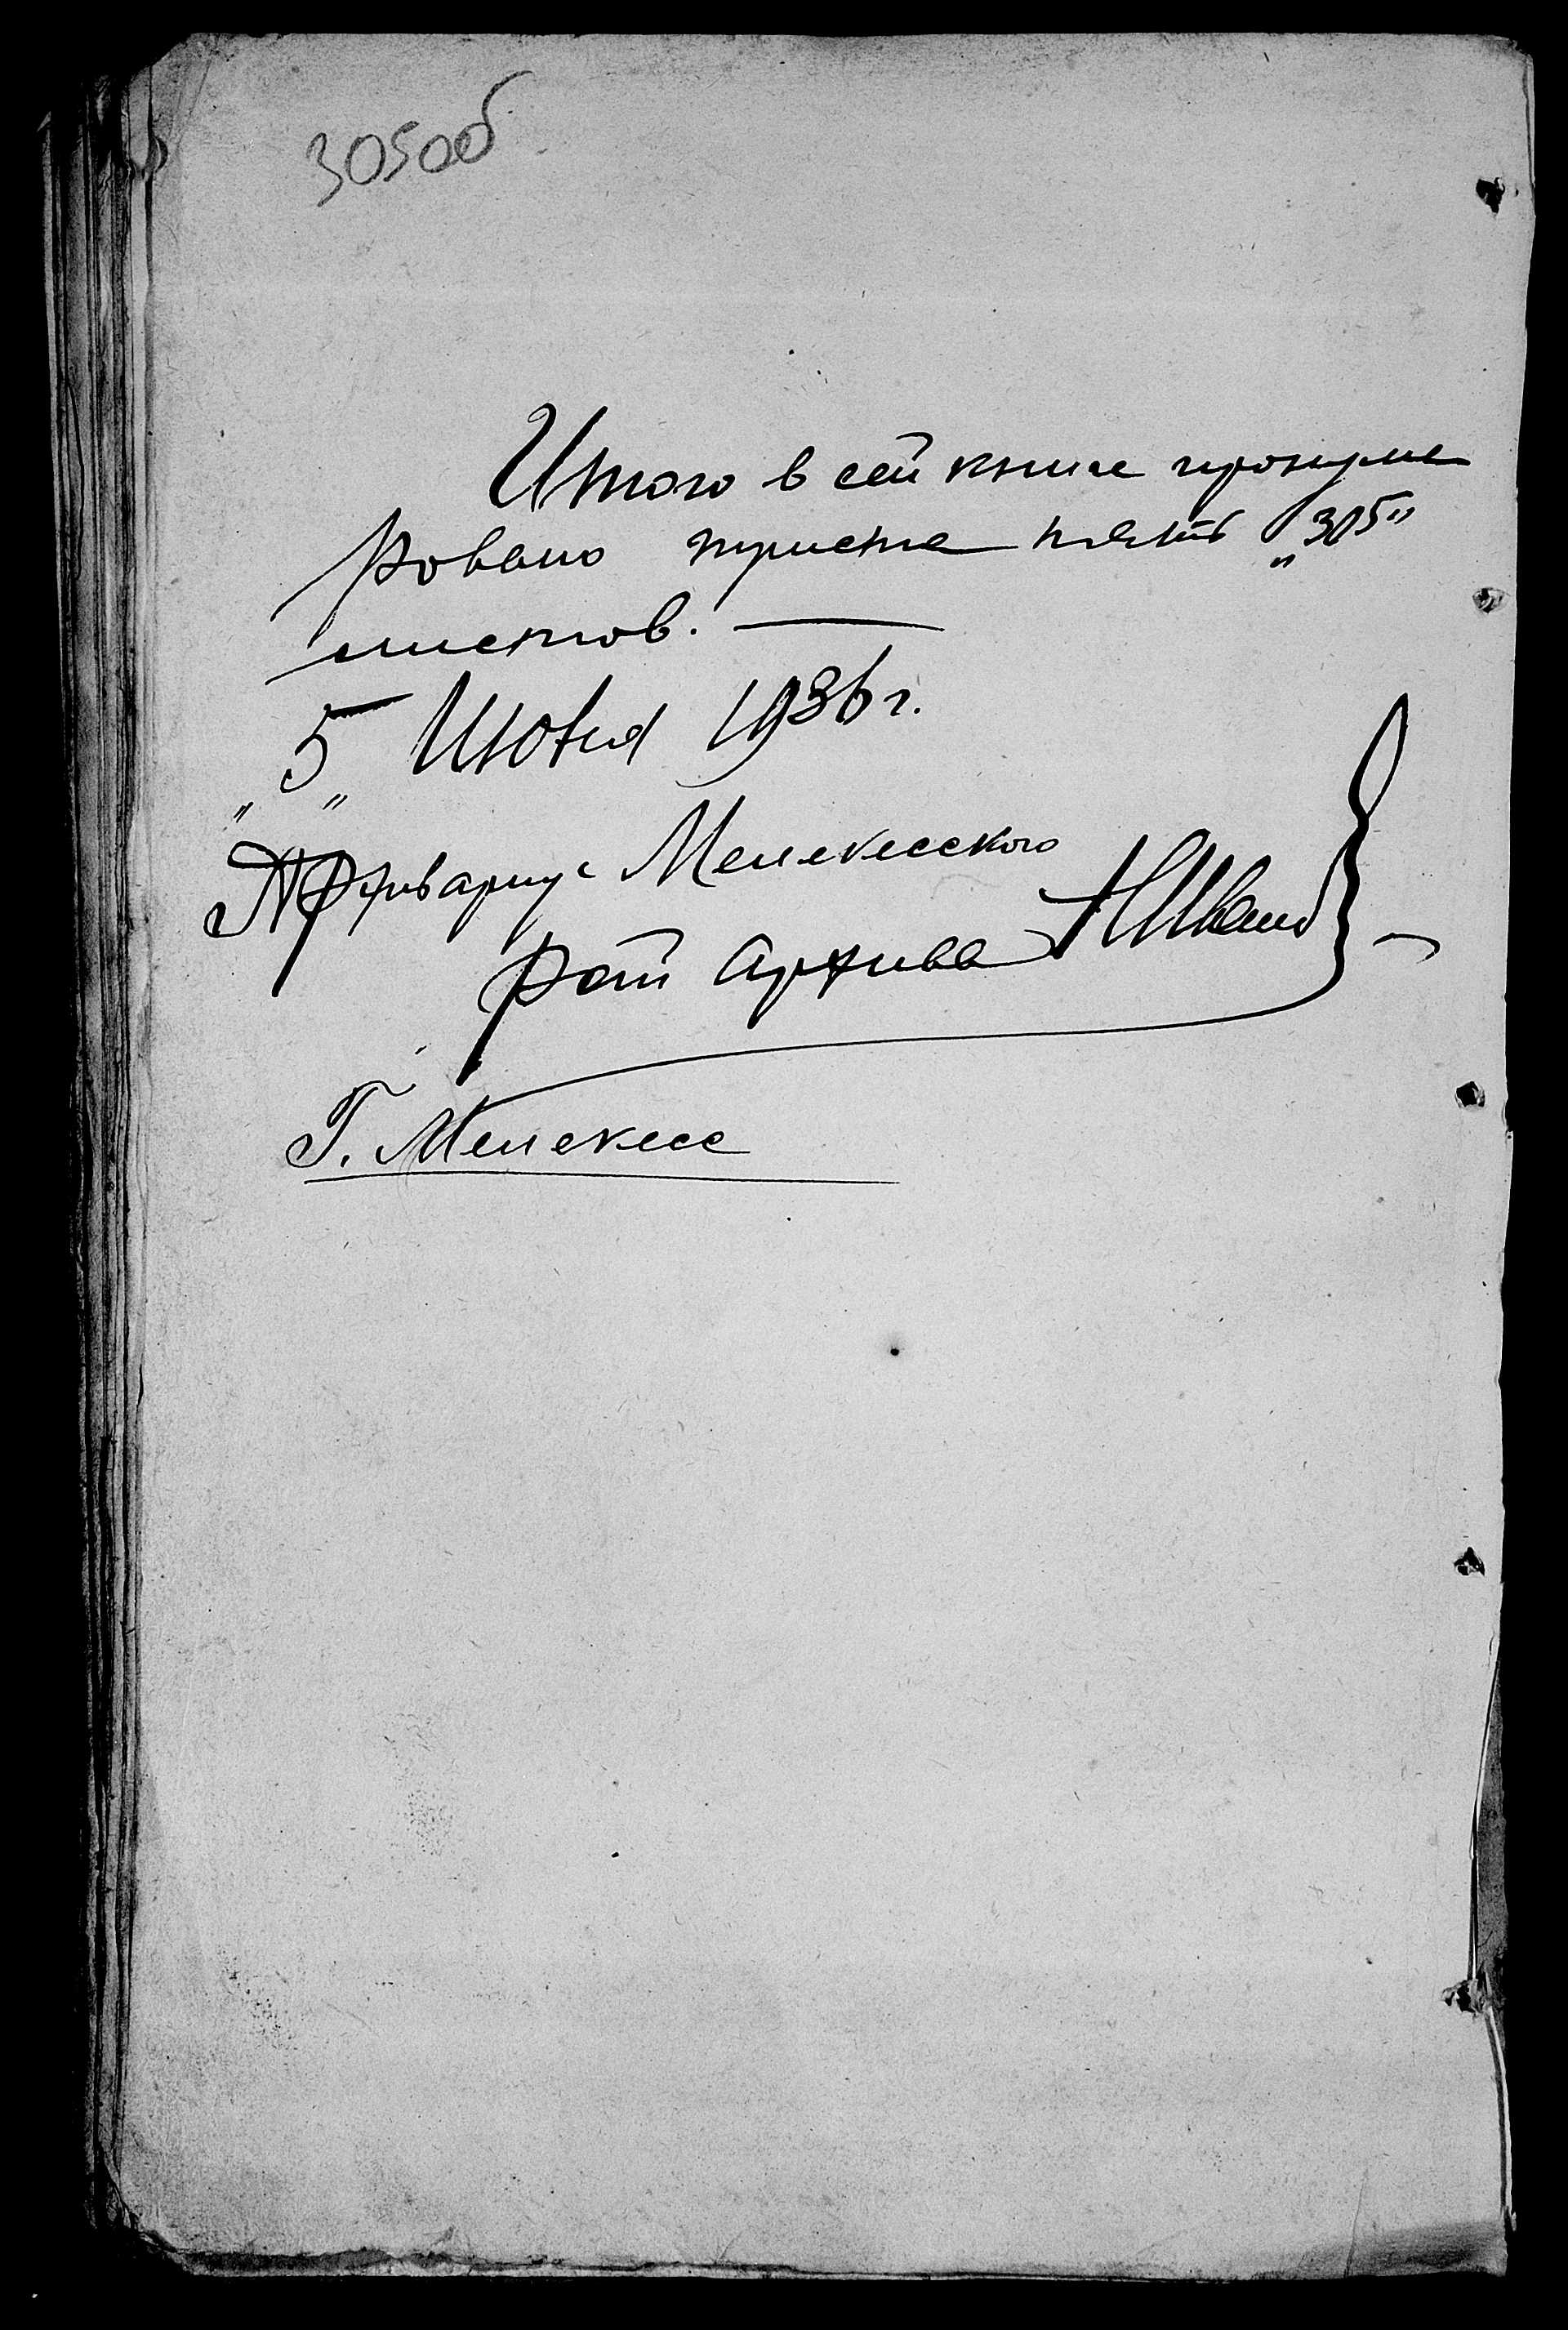 305об
Итого в сей книге пронуме
ровано триста пять „305"
листов. —
„5" Июня 1936 г.
Архивариус Мелекесского
рай архива
Г. Мелекесс